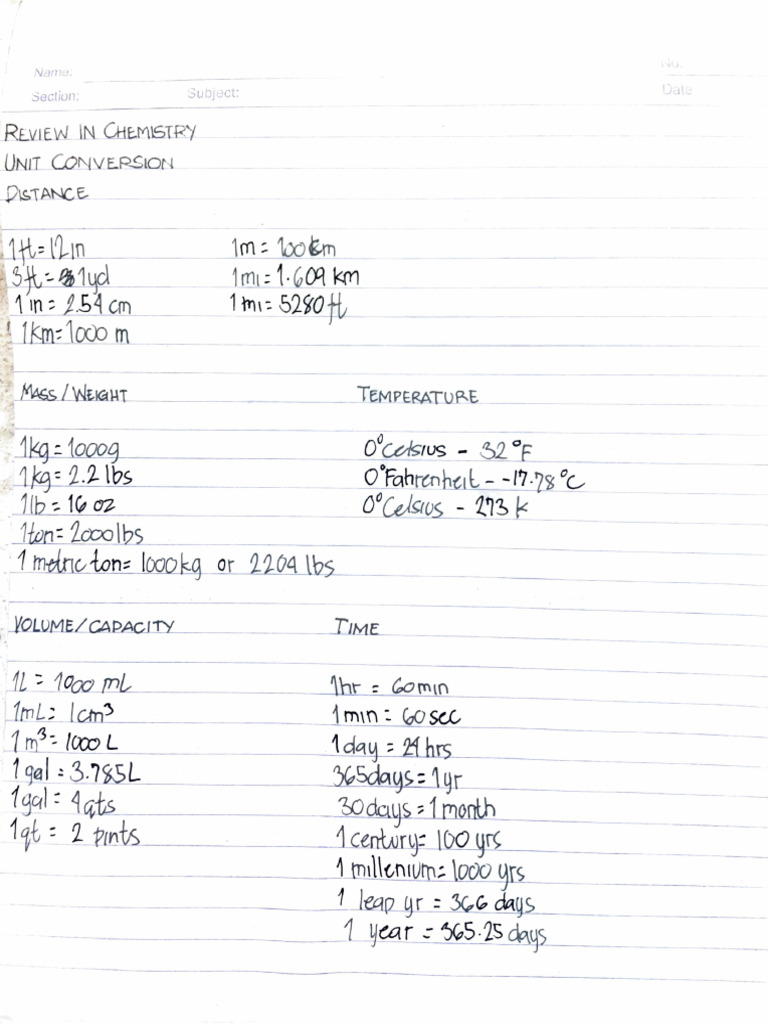 Name:
No:
Section:
Subject:
Date
REVIEW IN CHEMISTRY
UNIT CONVERSION
DISTANCE
1ft = 12in
3ft = 1yd
1in = 2.54 cm
1km = 1000 m
1m = 100cm
1mi = 1.609 km
1mi = 5280 ft
MASS / WEIGHT
1kg = 1000g
1kg = 2.2 lbs
1lb = 16 oz
1ton = 2000 lbs
1 metric ton = 1000kg or 2204 lbs
TEMPERATURE
0° Celsius - 32 °F
0° Fahrenheit - -17.78 °C
0° Celsius - 273 k
VOLUME / CAPACITY
1L = 1000 mL
1mL = 1cm³
1 m³ = 1000 L
1 gal = 3.785L
1gal = 4qts
1qt = 2 pints
TIME
1hr = 60min
1 min = 60 sec
1 day = 24 hrs
365days = 1yr
30 days = 1 month
1 century = 100 yrs
1 millenium = 1000 yrs
1 leap yr = 366 days
1 year = 365.25 days